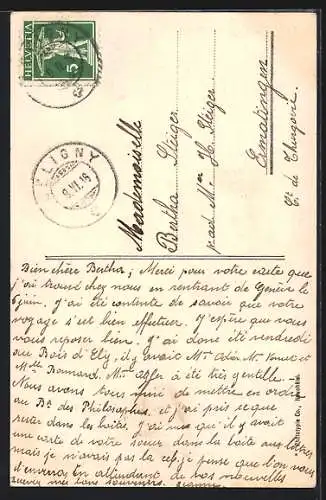 HELVETIA
5
LIGNY
9.VI.16
Mademoiselle
Bertha Steiger
Steiger
Ermatingen
Ct. de Thurgovie
Bien chère Bertha; Merci pour votre carte que
j'ai trouvé chez nous en rentrant de Genève le
juin. J'ai été contente de savoir que votre
voyage s'est bien effectuer. J'espère que vous
vous reposer bien. J'ai donc été vendredi
au Bois d'Ely, il y avait Mme et
Mlle Bonnard. Mme a été très gentille.
Nous avons tous de mettre en ordre
au Bd des Philosophes et j'ai pris ce que
rester dans les boîtes. J'ai vu qu'il y avait
une carte de votre soeur dans la boîte aux lettres
mais je n'avais pas la cef, je pense que l'on vous
l'enverra, en attendant de vos nouvelles
recevez mes bons souvenirs.